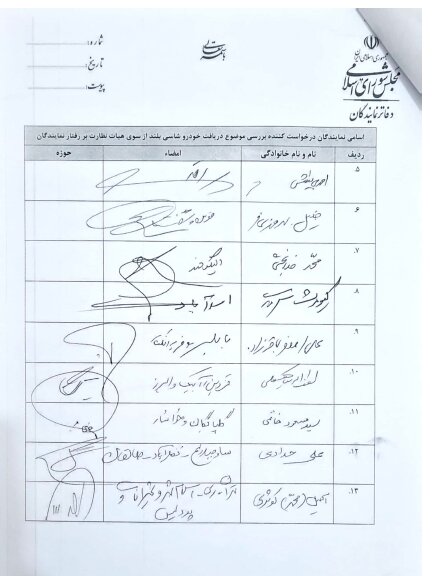 شماره:
تاریخ:
پیوست:
باسمه تعالی
جمهوری اسلامی ایران
مجلس شورای اسلامی
دفاتر نمایندگان
اسامی نمایندگان درخواست کننده بررسی موضوع دریافت خودرو شاسی بلند از سوی هیات نظارت بر رفتار نمایندگان
ردیف نام و نام خانوادگی امضاء حوزه
۵
۶ خلیل بهروزی فر
۷. محمد خدابخشی الیگودرز
۸ اسدآباد
۹ بابلسر و فریدونکنار
۱۰. قزوین آبیک و البرز
۱۱. سید مسعود خاتمی گلپایگان و خوانسار
۱۲. علی حدادی ساوجبلاغ - نظرآباد - طالقان
۱۳. کوثری تهران ری - اسلامشهر و شمیرانات و
پردیس